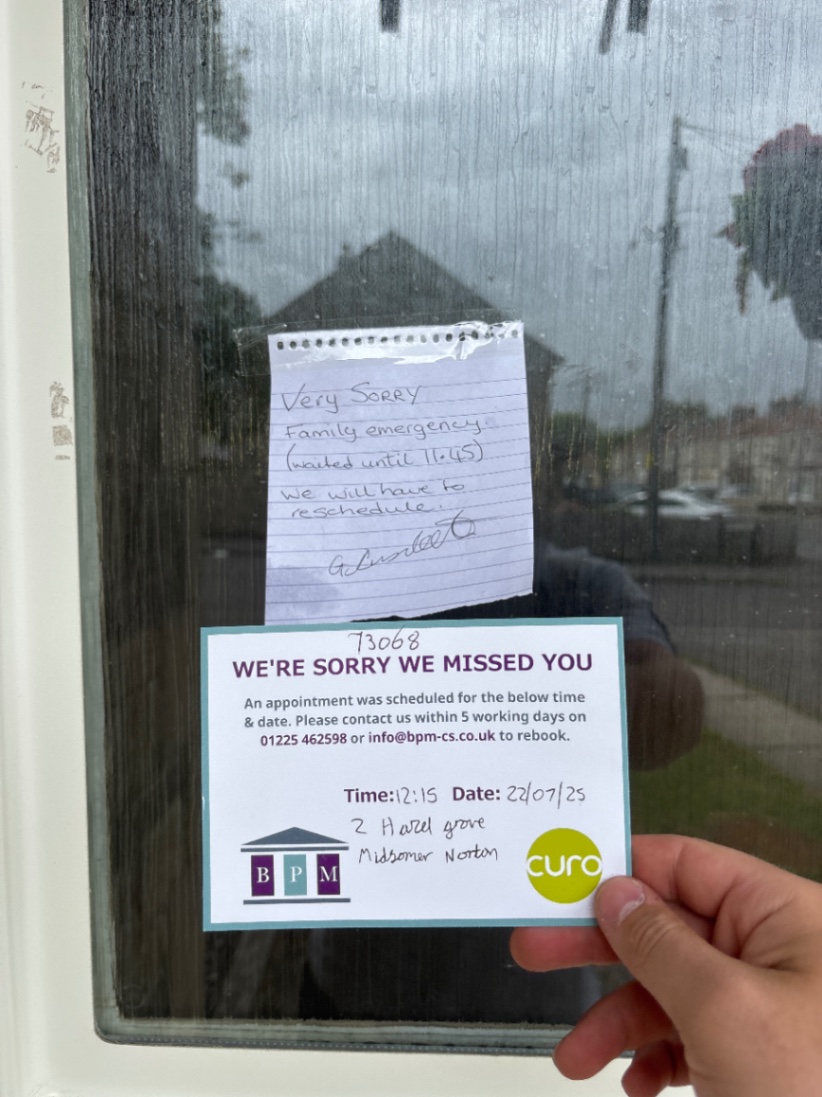 Very SORRY
Family emergency
(waited until 11.45)
we will have to
reschedule.
73068
WE'RE SORRY WE MISSED YOU
An appointment was scheduled for the below time
& date. Please contact us within 5 working days on
01225 462598 or info@bpm-cs.co.uk to rebook.
Time: 12:15 Date: 22/07/25
2 Hazel grove
Midsomer Norton
B P M
curo